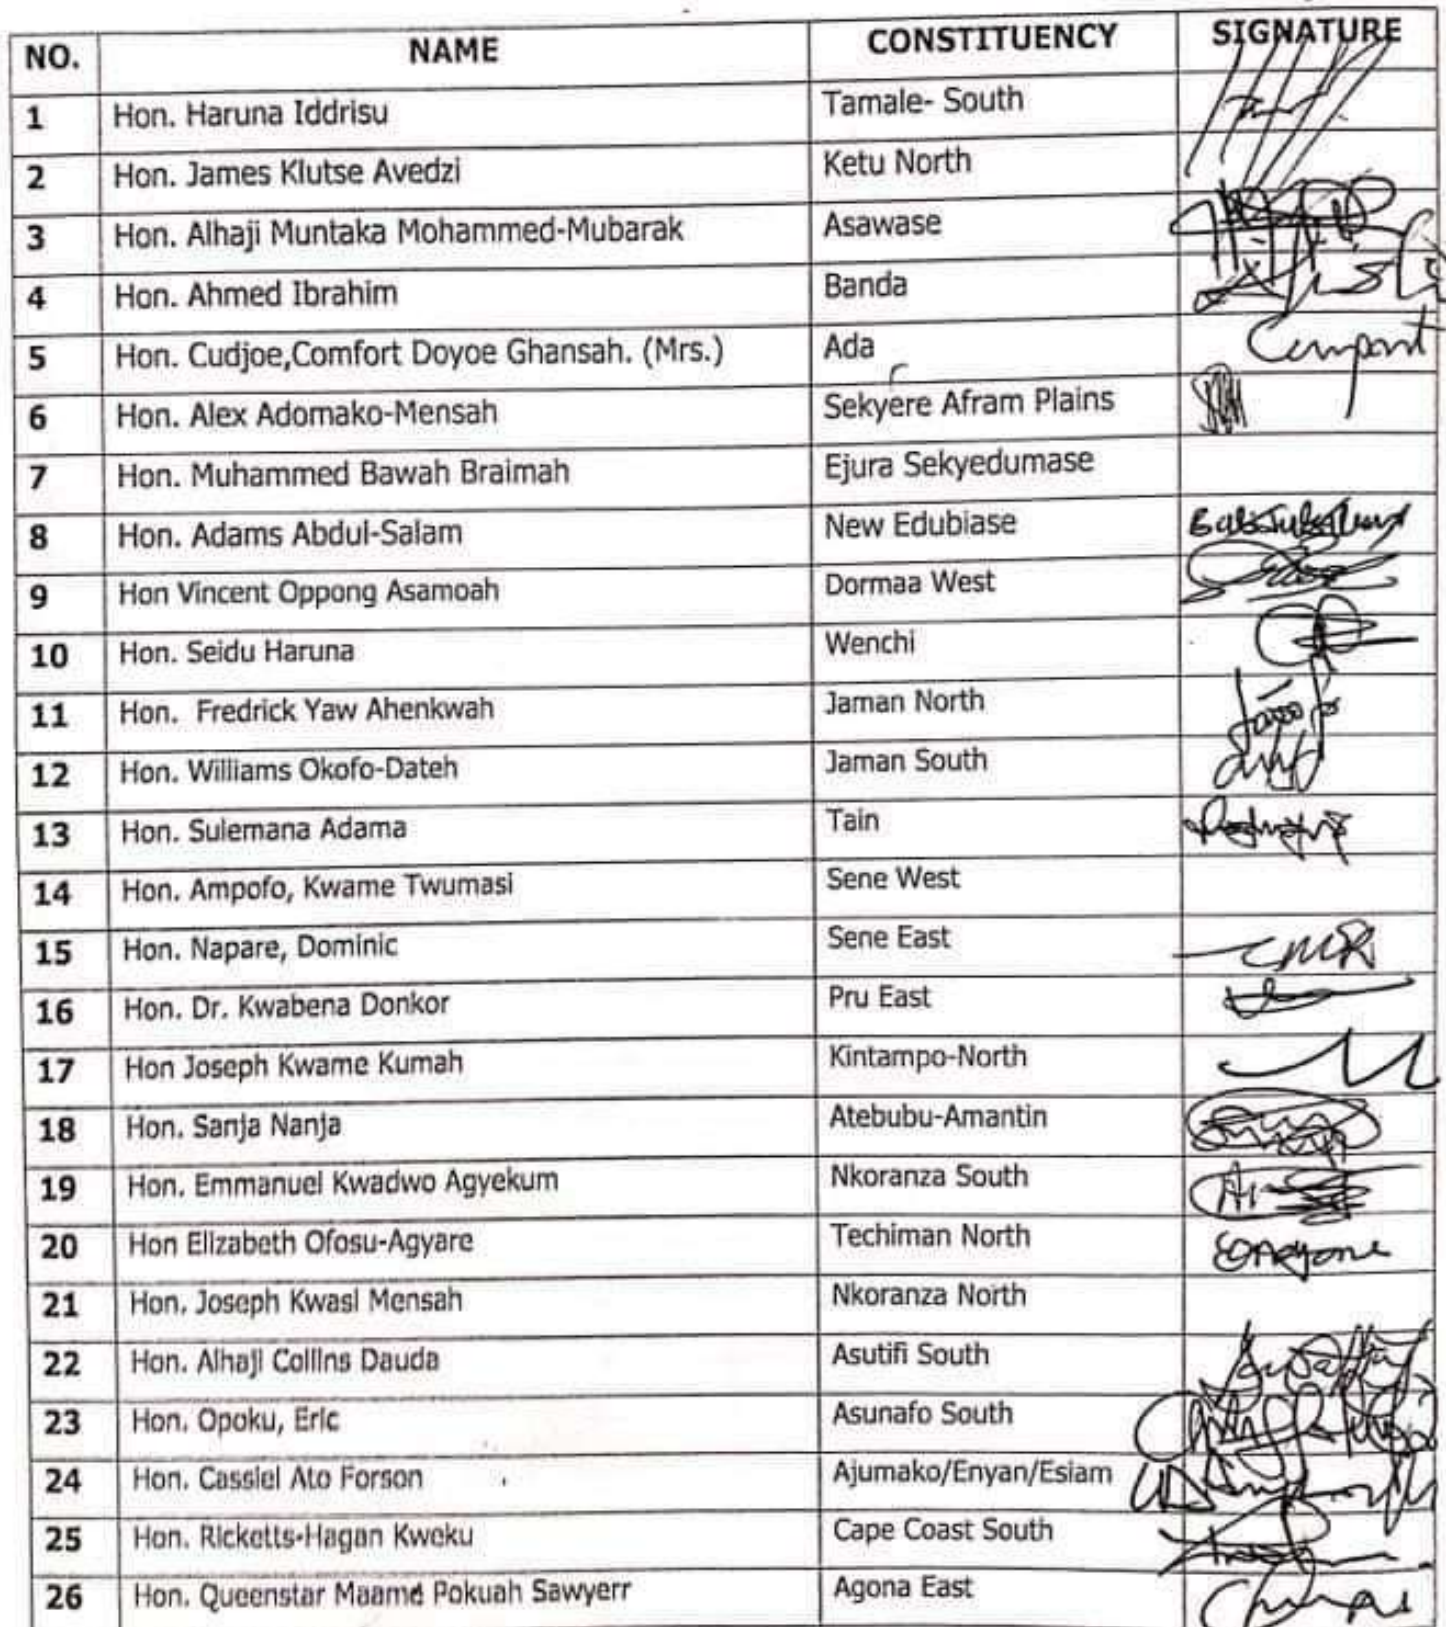 NO. NAME CONSTITUENCY SIGNATURE
1 Hon. Haruna Iddrisu Tamale- South
2 Hon. James Klutse Avedzi Ketu North
3 Hon. Alhaji Muntaka Mohammed-Mubarak Asawase
4 Hon. Ahmed Ibrahim Banda
5 Hon. Cudjoe,Comfort Doyoe Ghansah. (Mrs.) Ada
6 Hon. Alex Adomako-Mensah Sekyere Afram Plains
7 Hon. Muhammed Bawah Braimah Ejura Sekyedumase
8 Hon. Adams Abdul-Salam New Edubiase
9 Hon Vincent Oppong Asamoah Dormaa West
10 Hon. Seidu Haruna Wenchi
11 Hon. Fredrick Yaw Ahenkwah Jaman North
12 Hon. Williams Okofo-Dateh Jaman South
13 Hon. Sulemana Adama Tain
14 Hon. Ampofo, Kwame Twumasi Sene West
15 Hon. Napare, Dominic Sene East
16 Hon. Dr. Kwabena Donkor Pru East
17 Hon Joseph Kwame Kumah Kintampo-North
18 Hon. Sanja Nanja Atebubu-Amantin
19 Hon. Emmanuel Kwadwo Agyekum Nkoranza South
20 Hon Elizabeth Ofosu-Agyare Techiman North
21 Hon. Joseph Kwasi Mensah Nkoranza North
22 Hon. Alhaji Collins Dauda Asutifi South
23 Hon. Opoku, Eric Asunafo South
24 Hon. Cassiel Ato Forson Ajumako/Enyan/Esiam
25 Hon. Ricketts-Hagan Kweku Cape Coast South
26 Hon. Queenstar Maame Pokuah Sawyerr Agona East